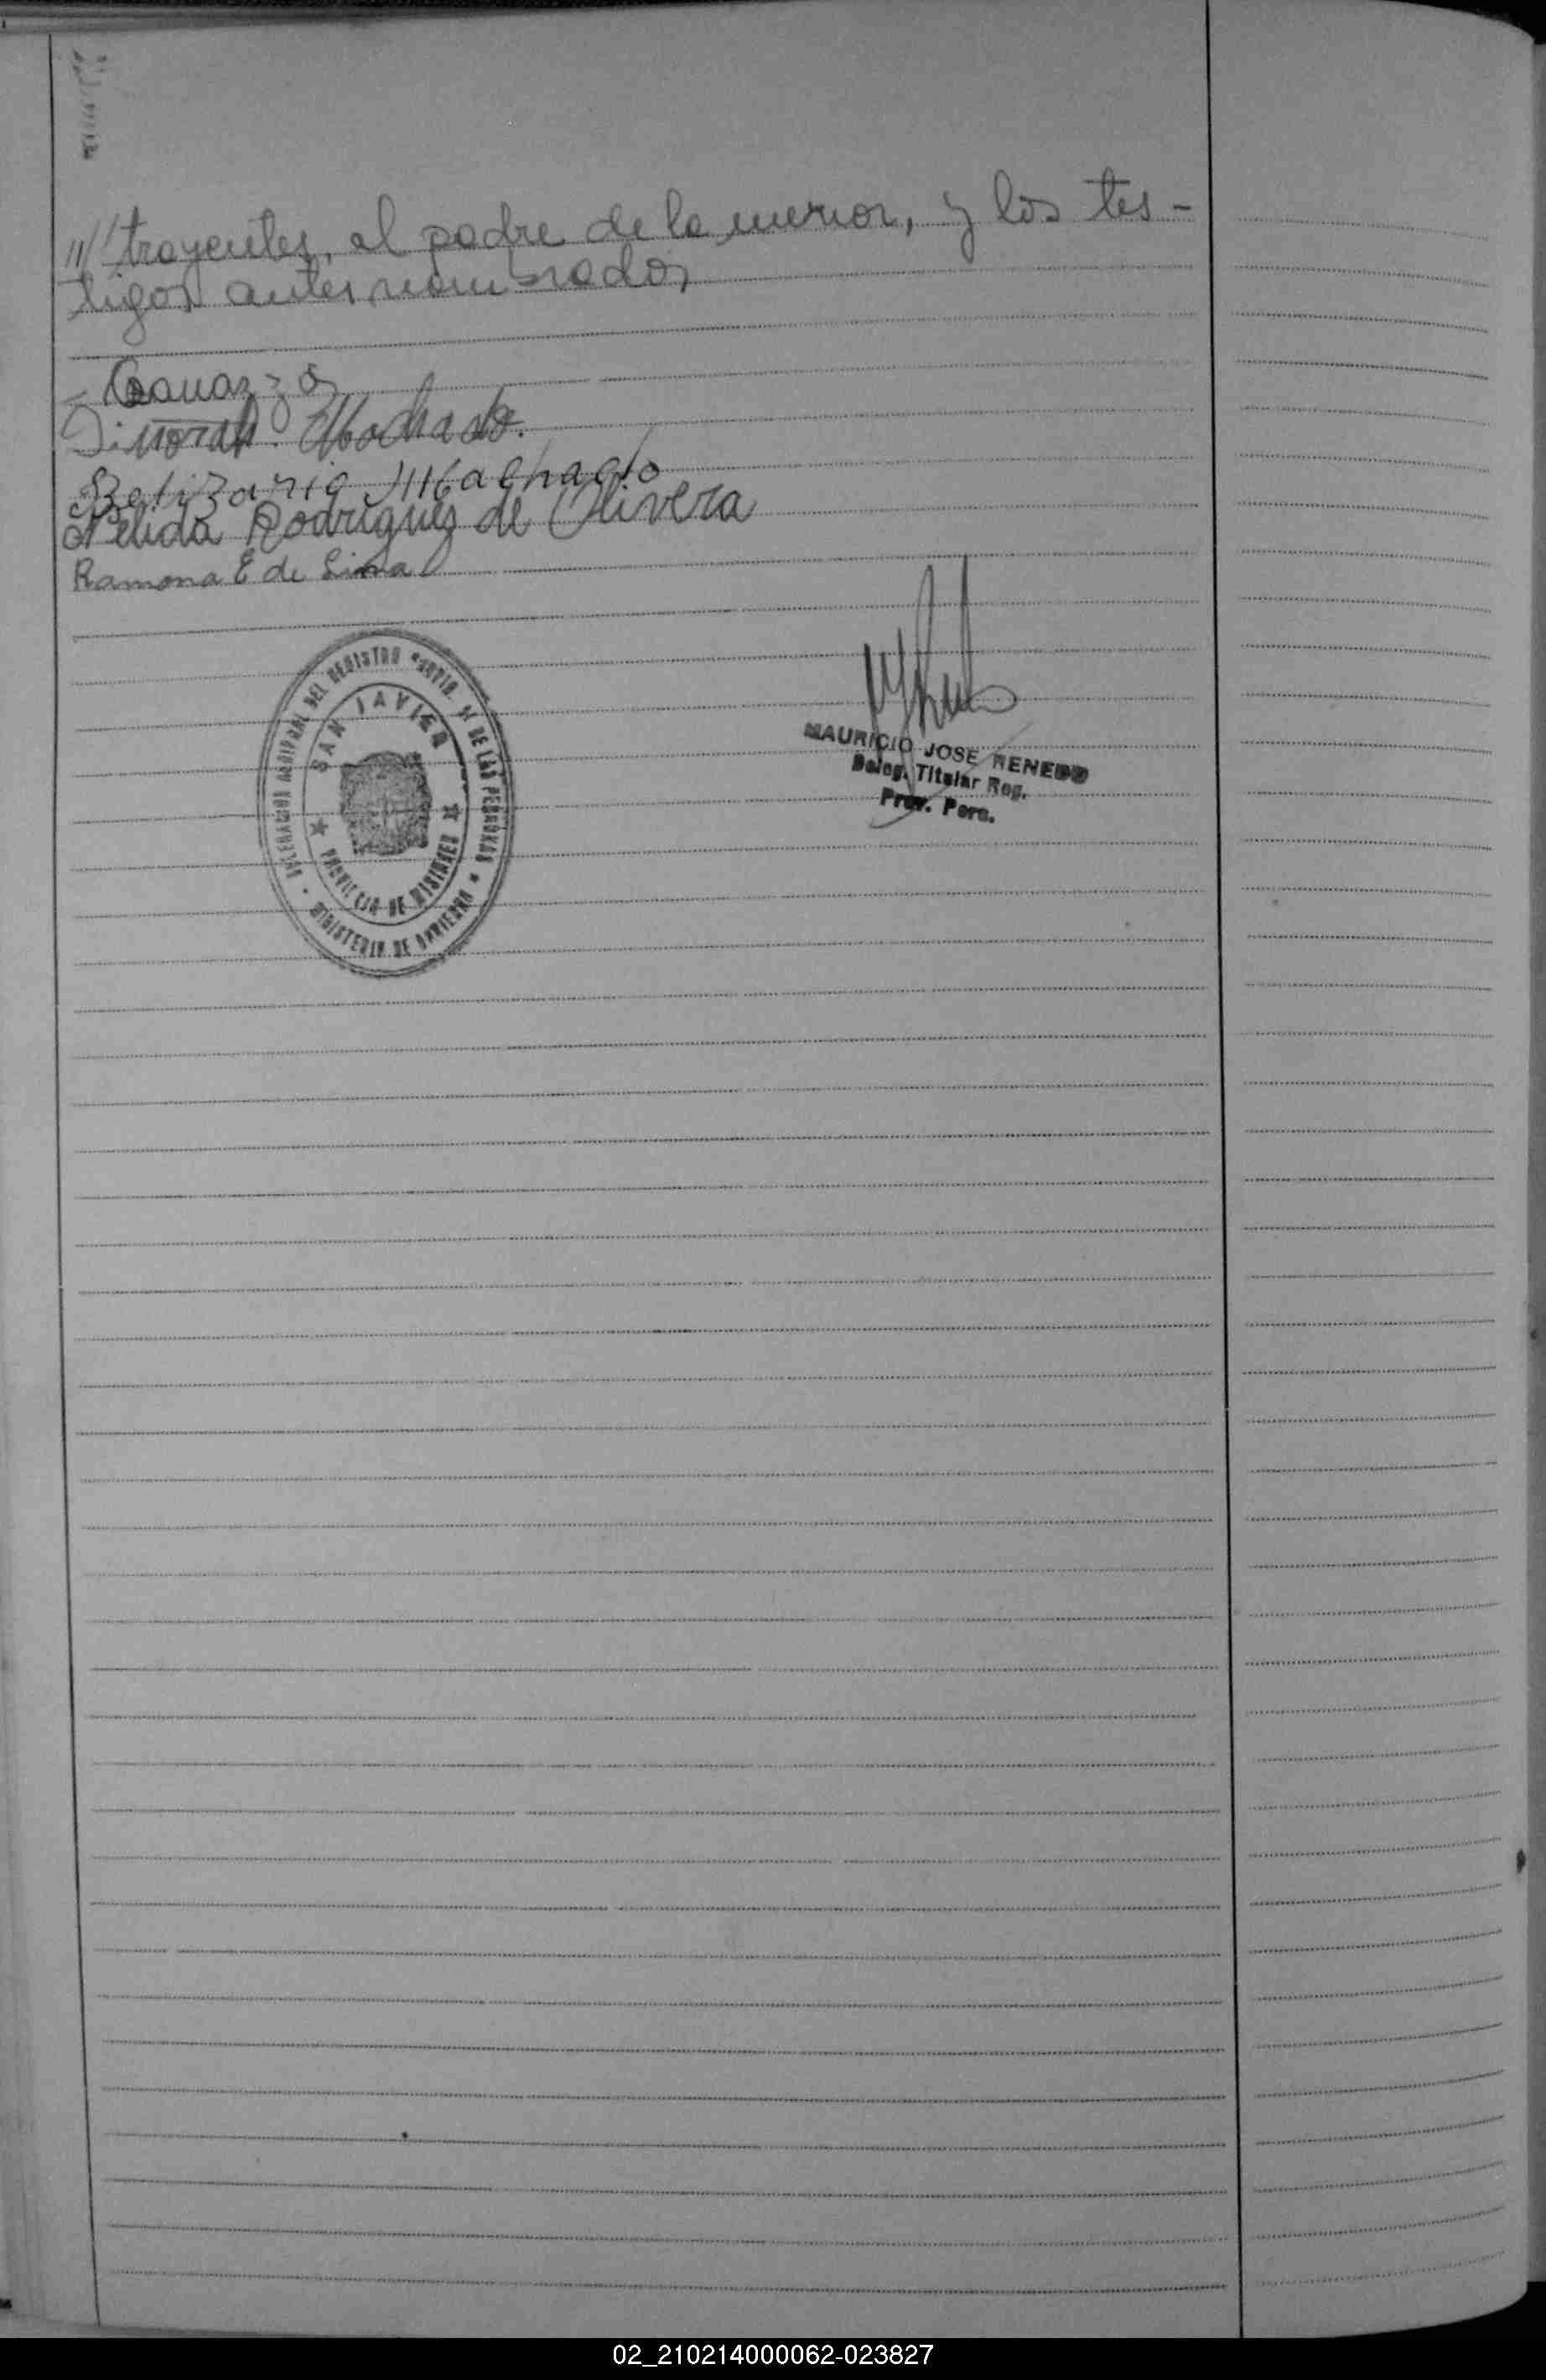 /// trayentes, el padre de la menor, y los tes-
tigos antes nombrados
Dinorah. Machado.
Belizario Machado
Nelida Rodriguez de Olivera
Ramona E de Lima
DELEGACION MUNICIPAL DEL REGISTRO PROVIN. DE LAS PERSONAS
SAN JAVIER
PROVINCIA DE MISIONES
MINISTERIO DE GOBIERNO
MAURICIO JOSE RENEDO
Deleg. Titular Reg.
Prov. Pers.
02_210214000062-023827